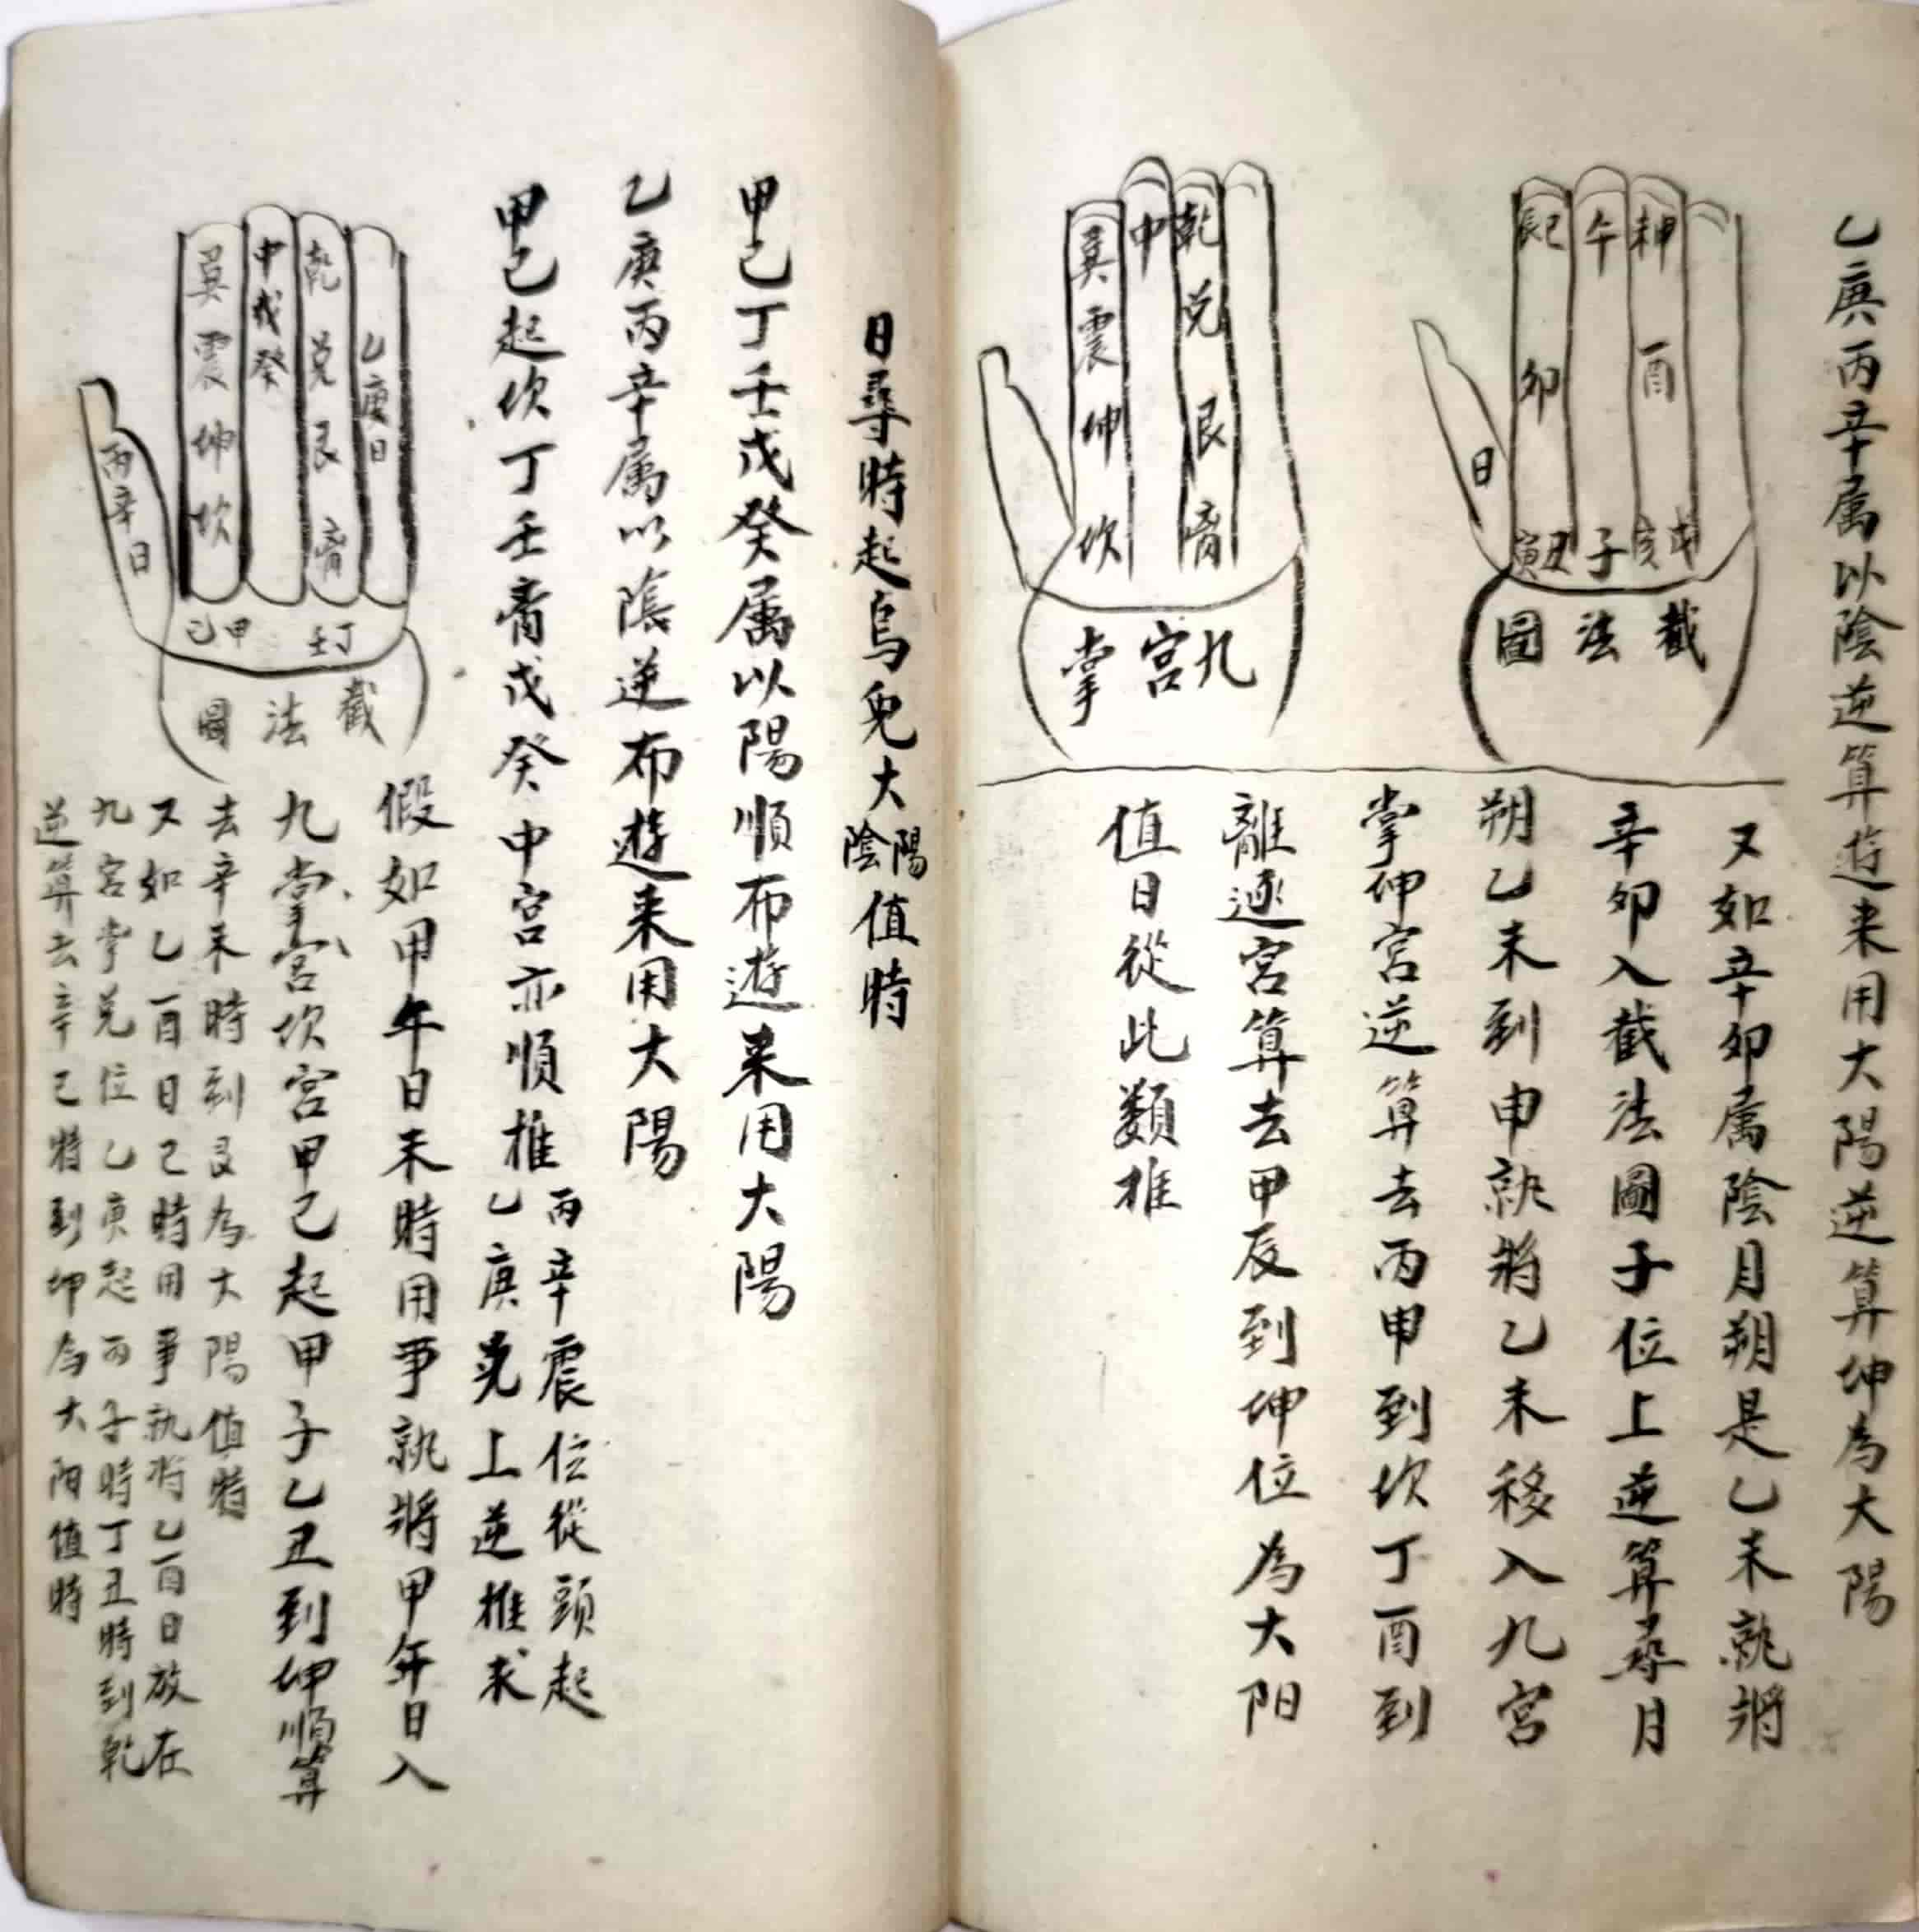 乙庚丙辛属以陰逆算遊来用大陽逆算坤為大陽
辰巳 午 未申
卯 酉
日
寅丑 子 亥戌
截法圖
又如辛卯属陰月朔是乙未就將
辛卯入截法圖子位上逆算尋月
朔乙未到申就將乙未移入九宮
掌坤宮逆算去丙申到坎丁酉到
離逐宮算去甲辰到坤位為大阳
值日從此類推
巽震坤坎
中
乾兑艮離
九宮掌
日尋時起烏兎大陽陰值時
甲己丁壬戊癸属以陽順布遊来用大陽
乙庚丙辛属以陰逆布遊来用大陽
甲己起坎丁壬离戊癸中宮亦順推
丙辛震位從頭起
乙庚兑上逆推求
乙庚日
乾兑艮离
中戊癸
巽震坤坎
丙辛日
己甲 壬丁
截法圖
假如甲午日未時用事就將甲午日入
九掌宮坎宮甲己起甲子乙丑到坤順算
去辛未時到艮為大陽值時
又如乙酉日巳時用事就將乙酉日放在
九宮掌兑位乙庚起丙子時丁丑時到乾
逆算去辛巳時到坤為大阳值時